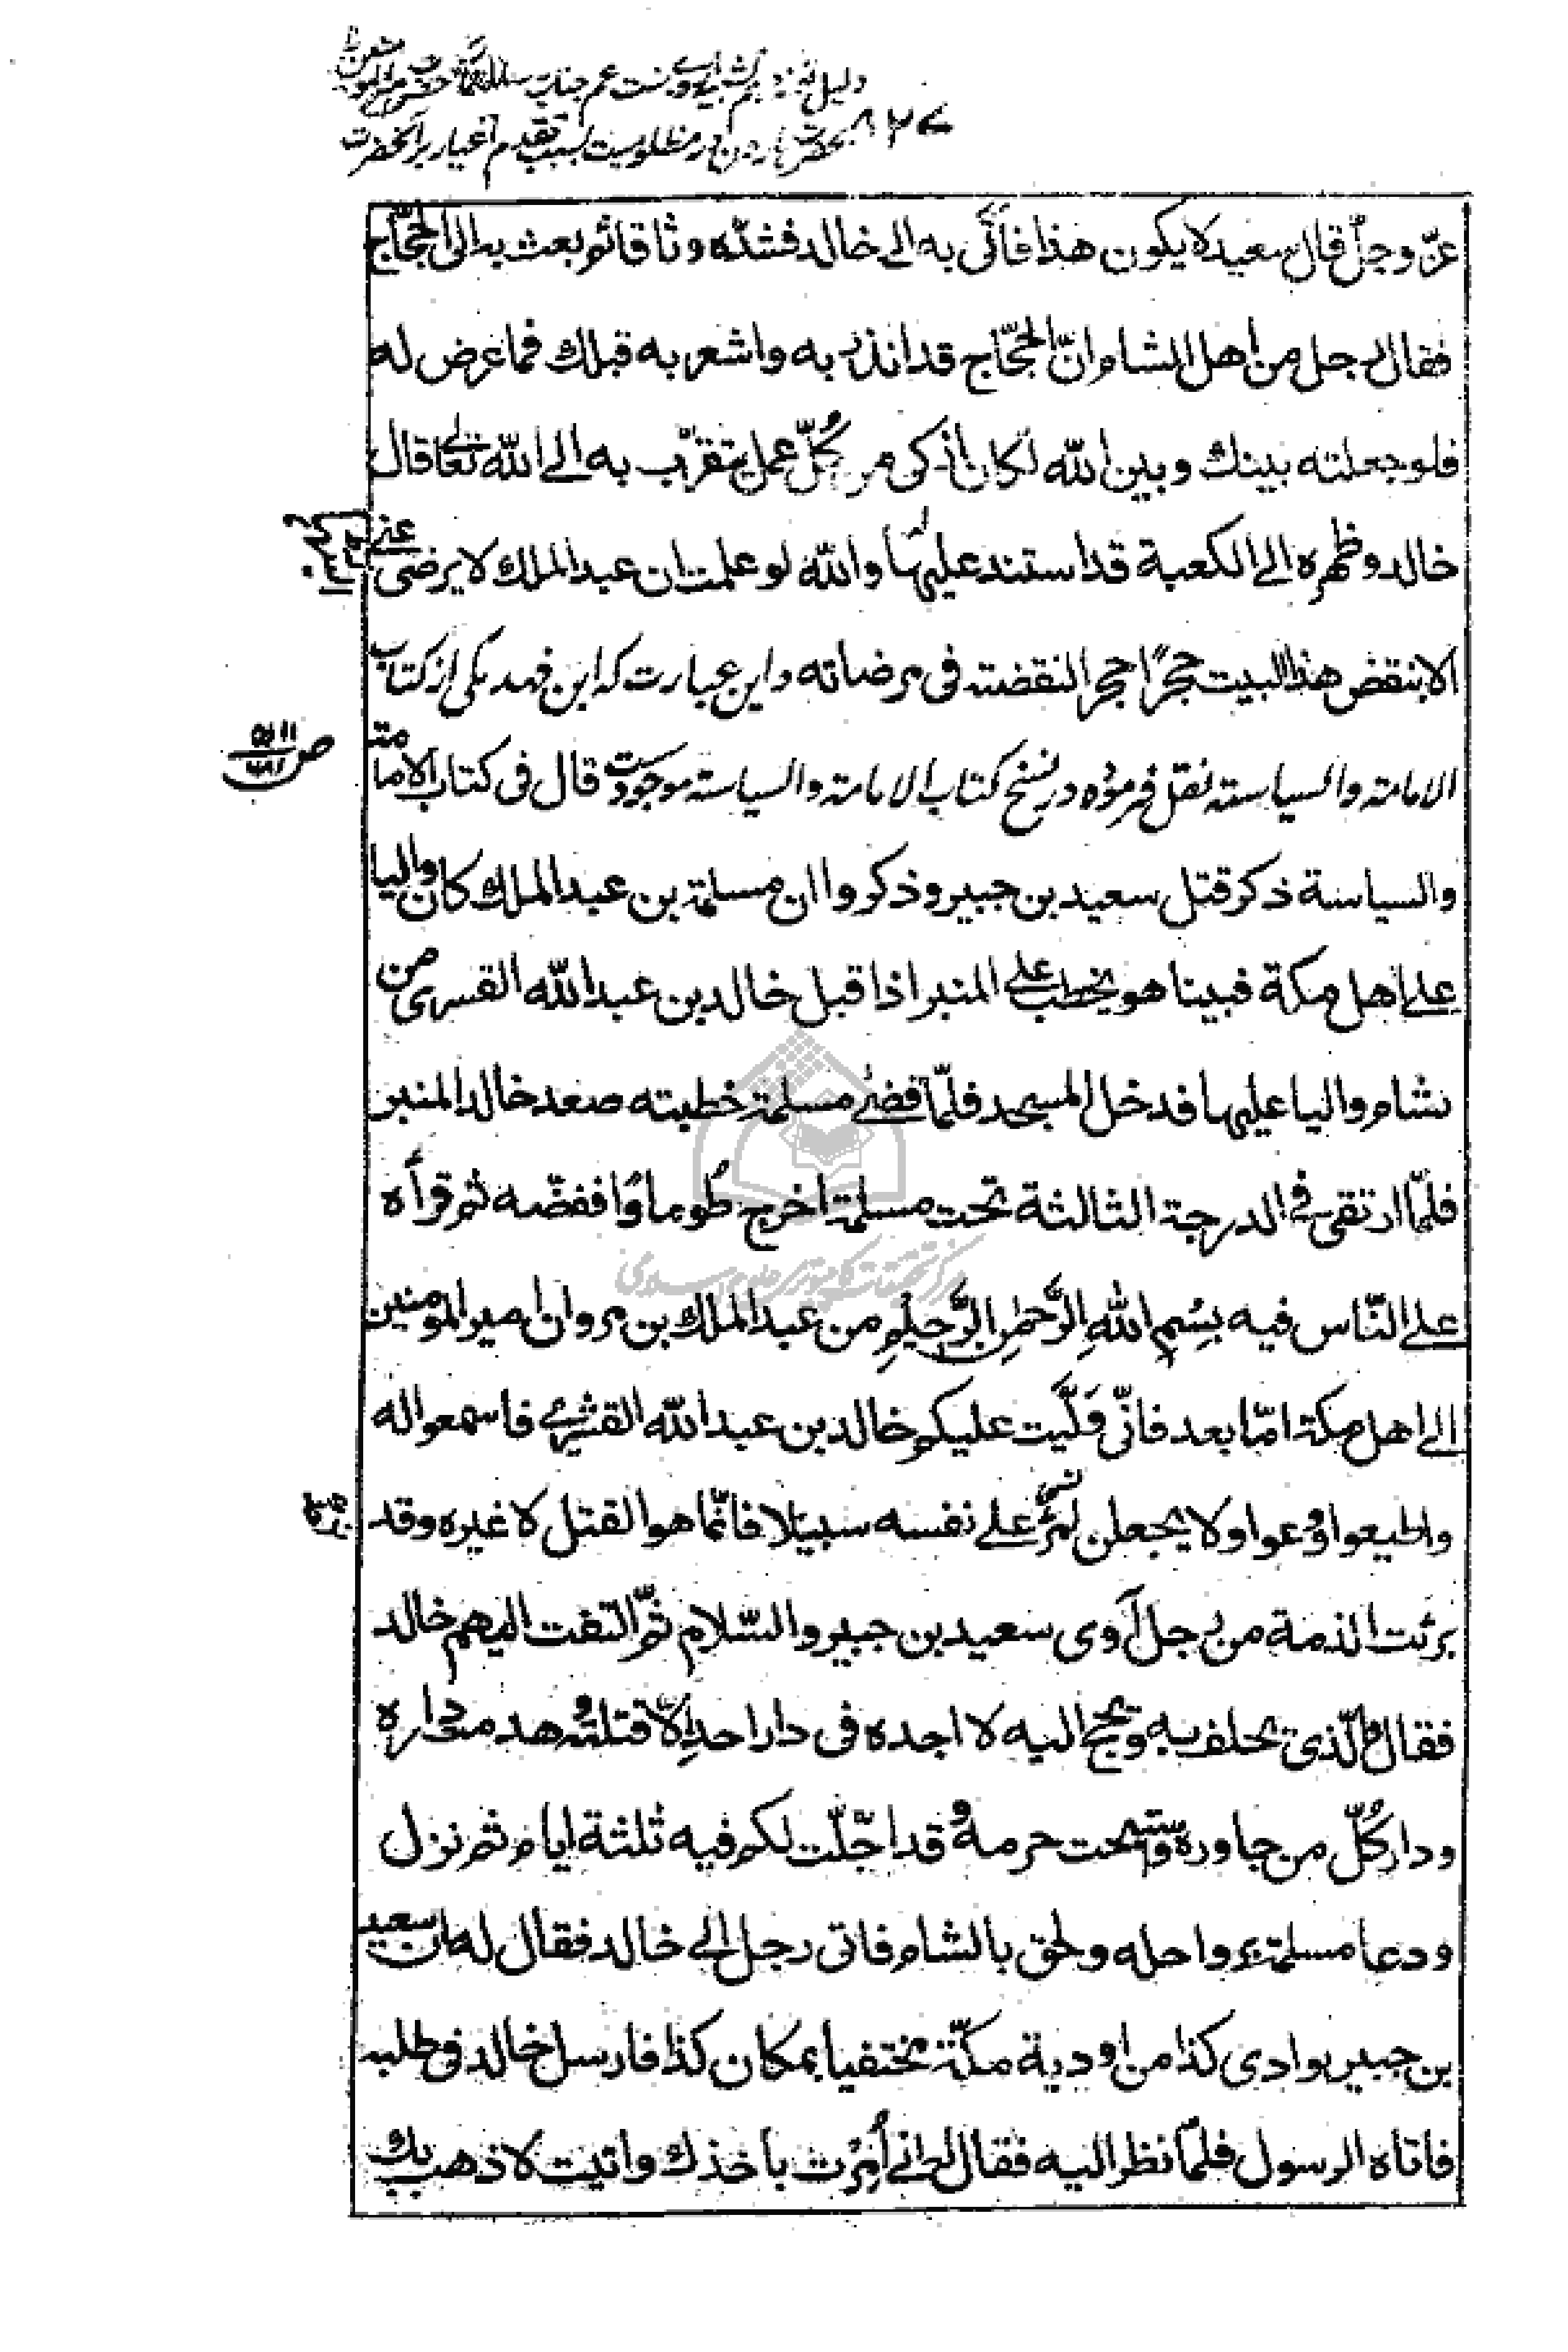 ۸۲۷
بحضرت هارون در مظلومیت بسبب تقدم اغیار بر آنحضرت
عزّ وجلّ قال سعید لا یکون هذا فأتی به الی خالد فشدّه وثاقا ثم بعث به الی الحجّاج
فقال رجل من اهل الشام انّ الحجّاج قد انذر به واشعر به قبلك فما عرض له
فلو جعلته بینك وبین الله لکان أزکی من کُلّ عمل یتقرّب به الی الله تعالی قال
خالد وظهره الی الکعبة قد استند علیها والله لو علمت ان عبد الملك لا یرضی عنی
الا بنقض هذا البیت حجرًا حجرا لنقضته فی مرضاته واین عبارت که ابن فهد مکی از کتاب
الامامة والسیاسته نقل فرموده در نسخ کتاب الامامة والسیاسته موجودست قال فی کتاب الامامة
ص
والسیاسة ذکر قتل سعید بن جبیر وذکروا ان مسلمة بن عبد الملك کان والیا
علی اهل مکة فبینا هو یخطب علی المنبر اذا قبل خالد بن عبد الله القسری من
شام والیا علیها فدخل المسجد فلمّا قضی مسلمة خطبته صعد خالد المنبر
فلمّا ارتقی فی الدرجة الثالثة تحت مسلمة اخرج طُومارًا ففضّه ثم قرأه
علی النّاس فیه بِسْمِ اللهِ الرَّحمٰنِ الرَّحیْمِ من عبد الملك بن مروان امیر المومنین
الی اهل مکة امّا بعد فانّی وَلَّیت علیکم خالد بن عبد الله القشیری فاسمعوا له
واطیعوا وعوا ولا یجعلن امرئ علی نفسه سبیلا فانّما هو القتل لا غیره وقد
برئت الذمة من رجل آوی سعید بن جبیر والسّلام ثمّ التفت الیهم خالد
فقال والّذی یحلف به ویحج الیه لا اجده فی دار احد إلّا قتلته وهدمت داره
ودار کُلّ من جاوره واستبحت حرمه وقد اجّلت لکم فیه ثلثة ایام ثم نزل
ودعا مسلمة برواحله ولحق بالشام فاتی رجل الی خالد فقال له ان سعید
بن جبیر بوادی کذا من اودیة مکّة مختفیا بمکان کذا فارسل خالد فی طلبه
فاتاه الرسول فلمّا نظر الیه فقال له انی أُمِرْت بأخذك واتیت لاذهب بك
مرکز تحقیقات کامپیوتری علوم اسلامی